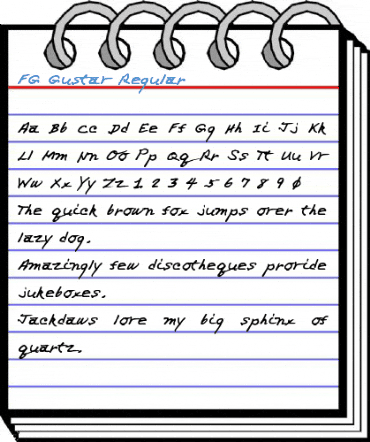 FG Gustar Regular
Aa Bb Cc Dd Ee Ff Gg Hh Ii Jj Kk
Ll Mm Nn Oo Pp Qq Rr Ss Tt Uu Vv
Ww Xx Yy Zz 1 2 3 4 5 6 7 8 9 0
The quick brown fox jumps over the
lazy dog.
Amazingly few discotheques provide
jukeboxes.
Jackdaws love my big sphinx of
quartz.